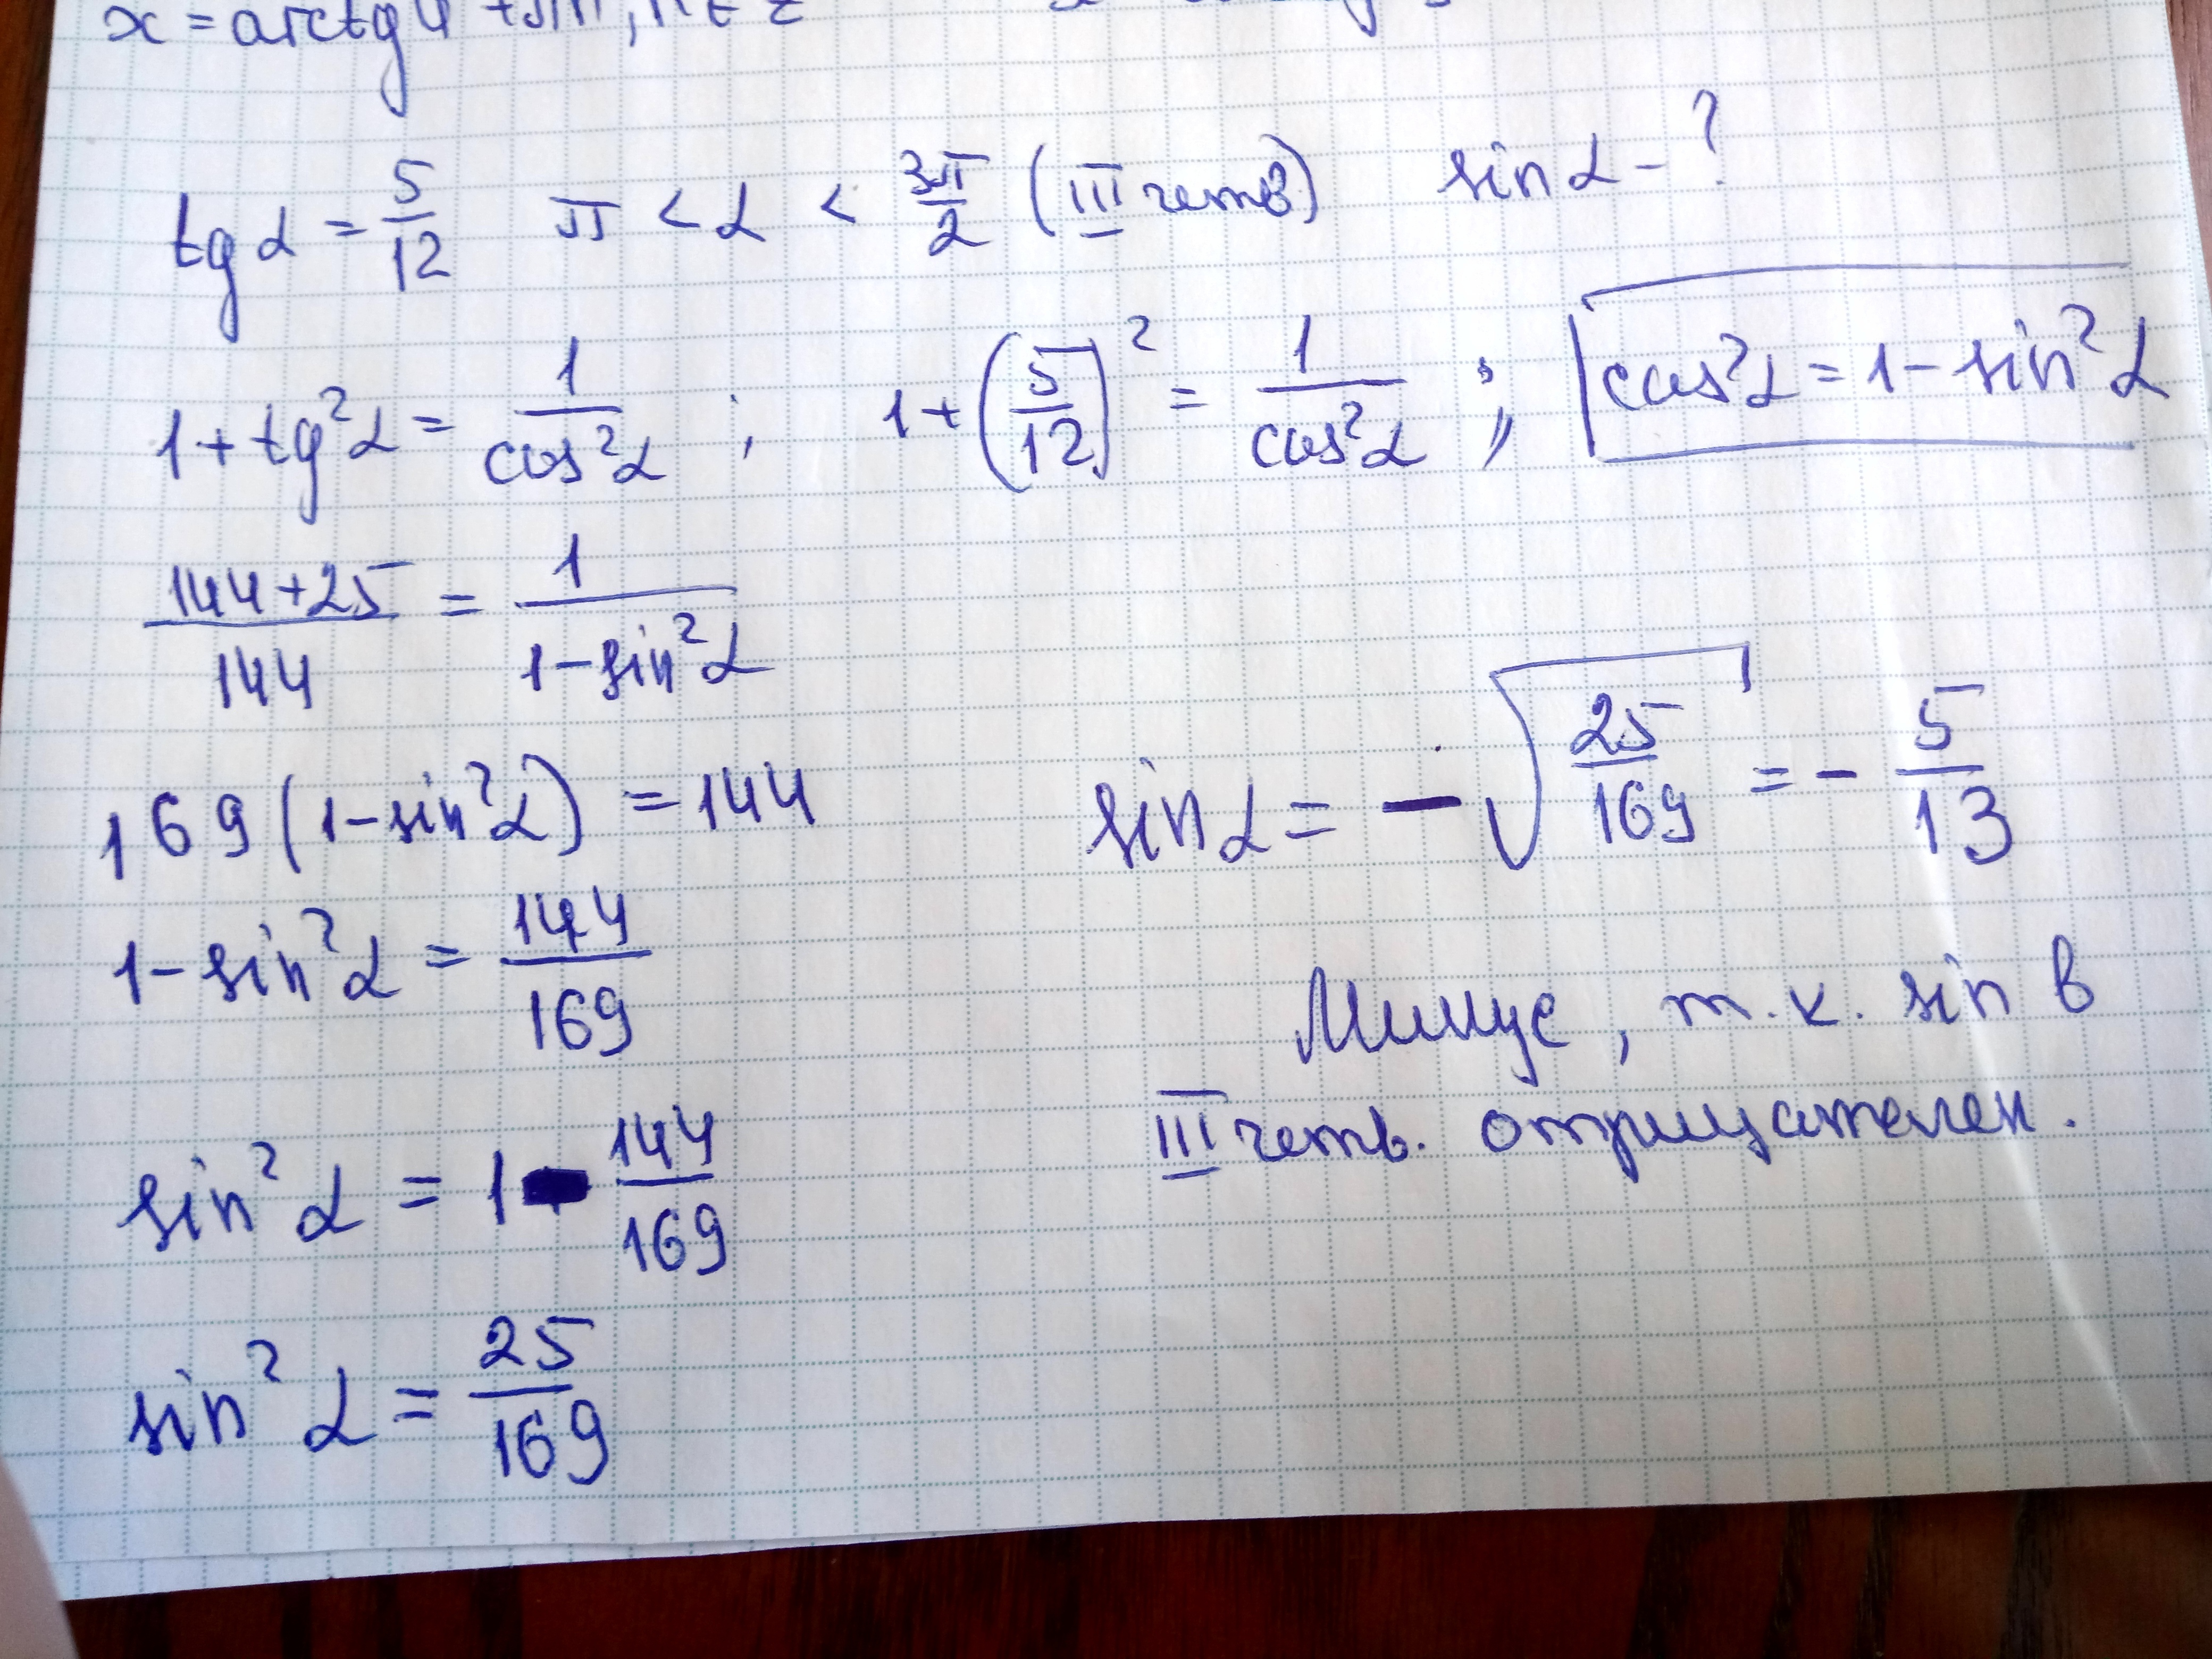 x = arctg 4 + πn, n ∈ Z
tg α = 5/12 π < α < 3π/2 (III четв) sin α - ?
1 + tg²α = 1/cos²α ; 1 + (5/12)² = 1/cos²α ; cos²α = 1 - sin²α
(144+25)/144 = 1/(1 - sin²α)
169(1 - sin²α) = 144
1 - sin²α = 144/169
sin²α = 1 - 144/169
sin²α = 25/169
sin α = -√(25/169) = -5/13
Минус, т.к. sin в
III четв. отрицателен.